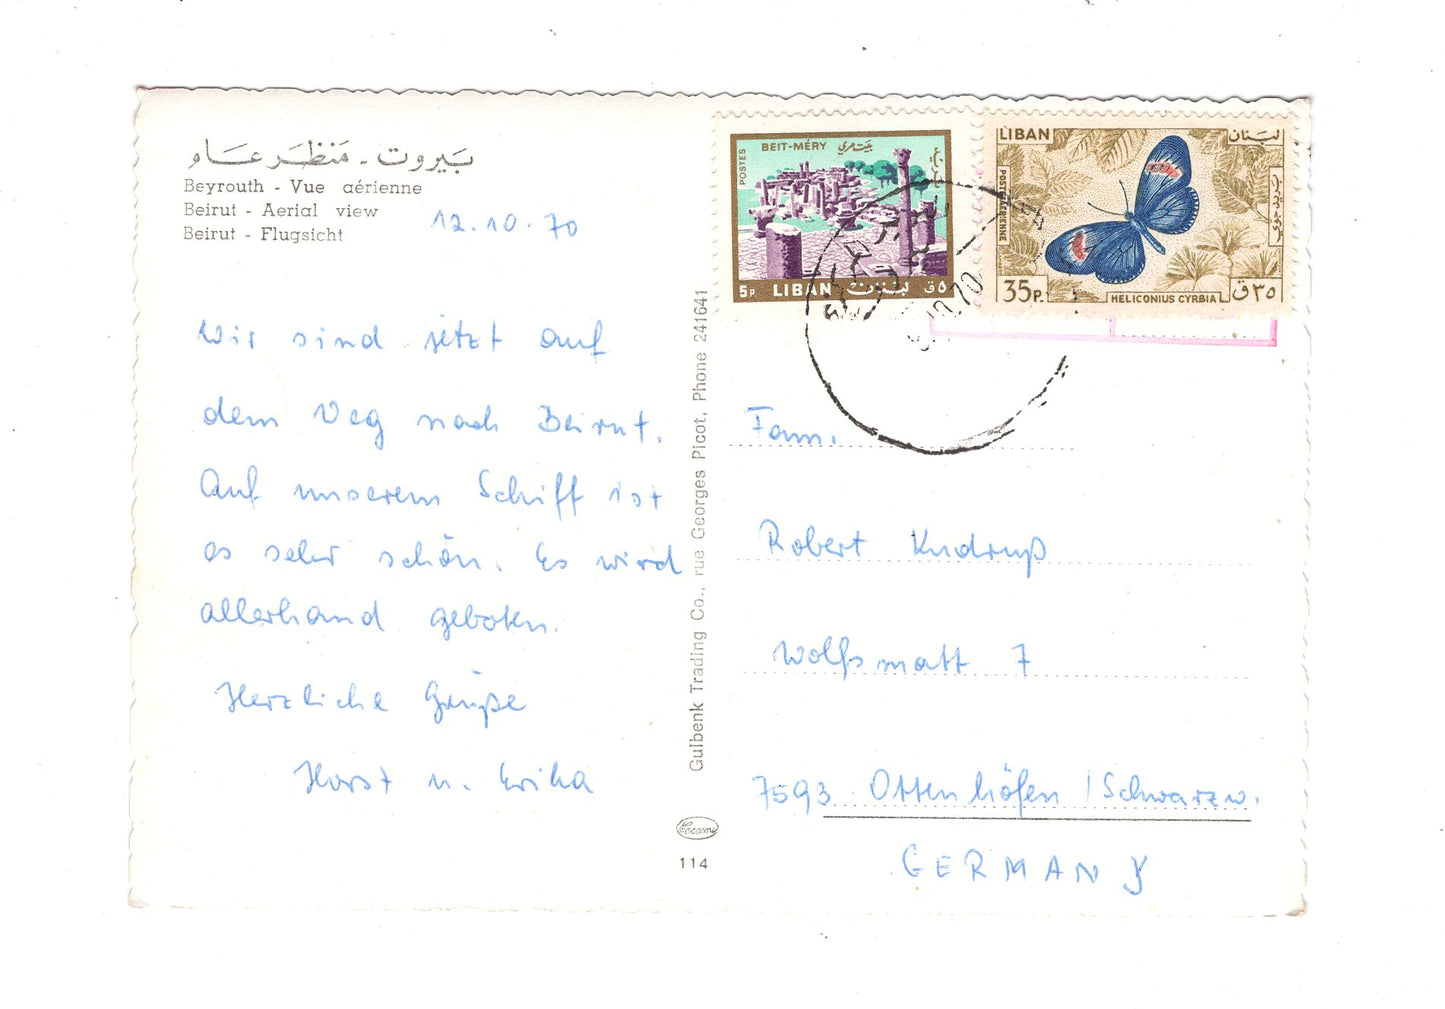 بيروت - منظر عام
Beyrouth - Vue aérienne
Beirut - Aerial view
Beirut - Flugsicht
12.10.70
Wir sind jetzt auf
dem Weg nach Beirut.
Auf unserem Schiff ist
es sehr schön. Es wird
allerhand geboten.
Herzliche Grüße
Horst u. Erika
Gulbenk Trading Co., rue Georges Picot, Phone 241641
114
POSTES
BEIT-MÉRY بيت مري
5P. LIBAN لبنان ٥ق
LIBAN لبنان
POSTE AERIENNE
بريد جوي
35P. HELICONIUS CYRBIA ٣٥ق
70
Fam.
Robert Kndruß
Wolfsmatt 7
7593 Ottenhöfen / Schwarzw.
GERMANY